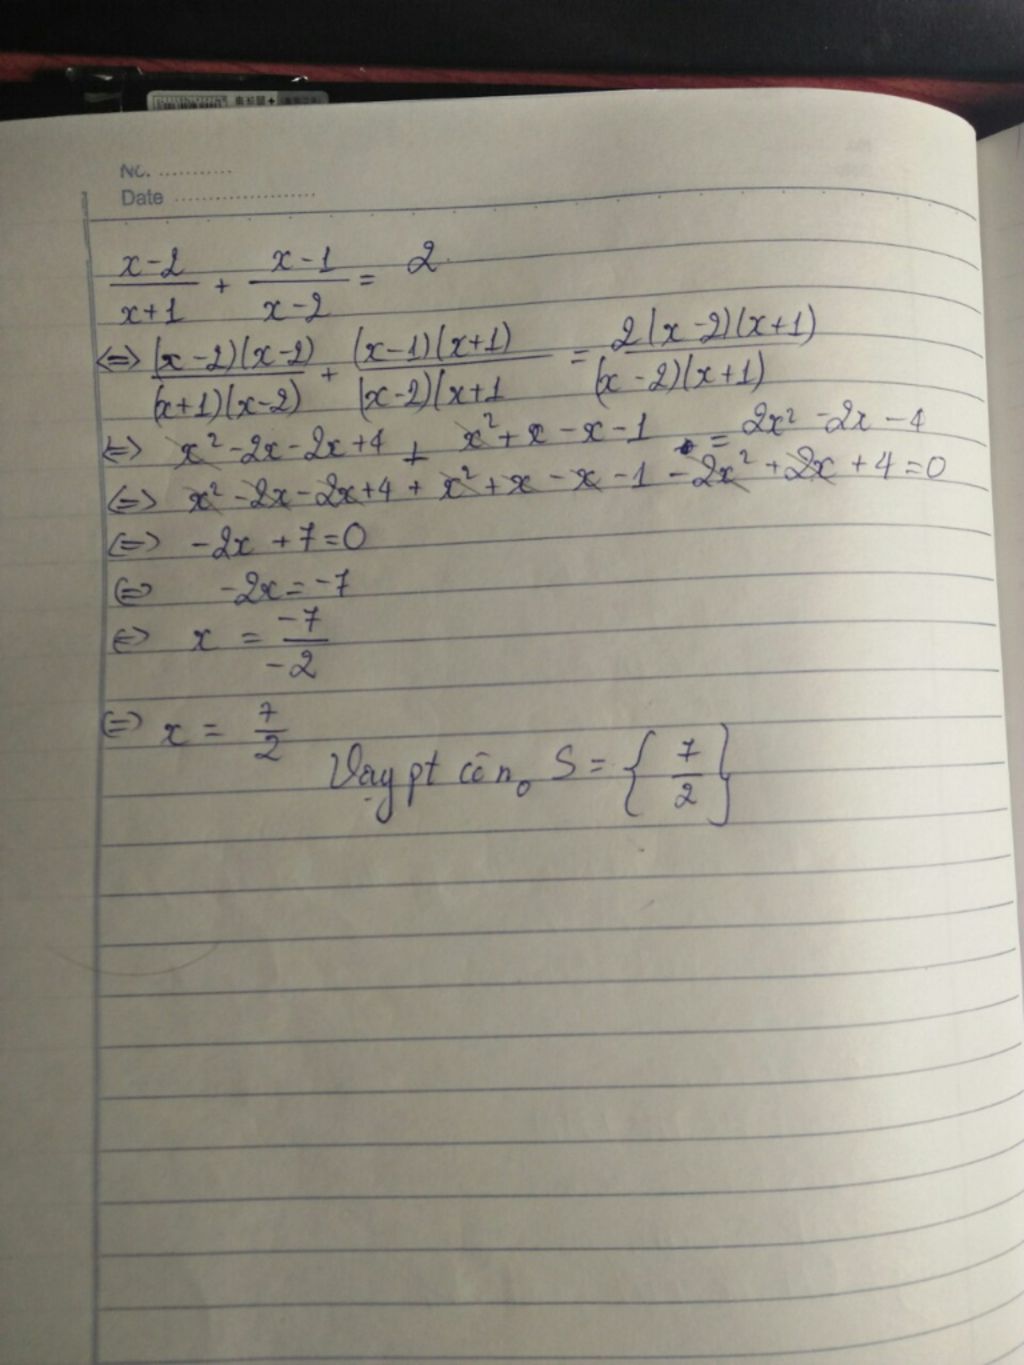 No. ...........
Date ....................
x-2/x+1 + x-1/x-2 = 2
<=> (x-2)(x-2)/(x+1)(x-2) + (x-1)(x+1)/(x-2)(x+1 = 2(x-2)(x+1)/(x-2)(x+1)
<=> x² -2x-2x+4 + x²+x-x-1 = 2x² -2x -4
<=> x² -2x-2x+4 + x²+x-x-1 -2x² +2x +4=0
<=> -2x +7=0
<=> -2x=-7
<=> x = -7/-2
<=> x = 7/2
Vậy pt có n₀ S = {7/2}